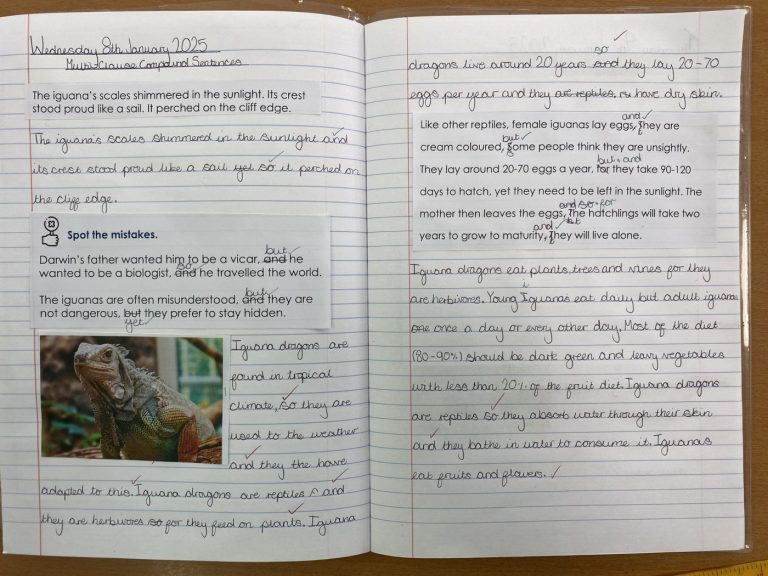 Wednesday 8th January 2025
Multi-Clause Compound Sentences
The iguana's scales shimmered in the sunlight. Its crest
stood proud like a sail. It perched on the cliff edge.
The iguana's scales shimmered in the sunlight and
its crest stood proud like a sail yet so it perched on
the cliff edge.
Spot the mistakes.
but
Darwin's father wanted him to be a vicar, and he
so
wanted to be a biologist, and he travelled the world.
but
The iguanas are often misunderstood, and they are
not dangerous, but they prefer to stay hidden.
yet
Iguana dragons are
found in tropical
climate, so they are
used to the weather
and they the have
adapted to this. Iguana dragons are reptiles and
they are herbivores so for they feed on plants. Iguana
so
dragons live around 20 years and they lay 20-70
eggs per year and they are reptiles, have dry skin.
and
Like other reptiles, female iguanas lay eggs, They are
but
cream coloured, Some people think they are unsightly.
but and
They lay around 20-70 eggs a year, for they take 90-120
days to hatch, yet they need to be left in the sunlight. The
and so for
mother then leaves the eggs, The hatchlings will take two
and but
years to grow to maturity, They will live alone.
Iguana dragons eat plants, trees and vines for they
i
are herbivores. Young Iguanas eat daily but adult iguana
once a day or every other day. Most of the diet
(80-90%) should be dark green and leavy vegetables
with less than 20% of the fruit diet. Iguana dragons
are reptiles so they absorb water through their skin
and they bathe in water to consume it. Iguanas
eat fruits and flowers.